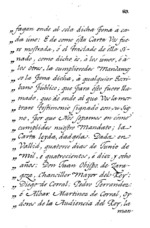 fagan ende al sola dicha pena à ca-
da uno: E de como esta Carta vos fue
re mostrada, è el Traslado de ello sig-
nado, como dicho es, è los unos, è à
los otros, la cumplierdes Mandamos
so la pena dicha, à qualquier Escri-
bano publico, que para esto fuere lla-
mado, que dè ende al que vos la mos-
trare testimonio signado con su sig-
no, Por que Nos sepamos en como
cumplides nuestro Mandato; la
Carta leyda, dadgela: Dada en
Vallid, quatro dias de Junio de
mil, è quatrocientos, è diez, y ocho
años: Don Juan Obispo de
Chanciller Mayor del Rey:
Diego de Corral, Pedro Fernandez
è Alfon Martinez de Corral, Oy-
dores de la Audiencia del Rey, la
man-